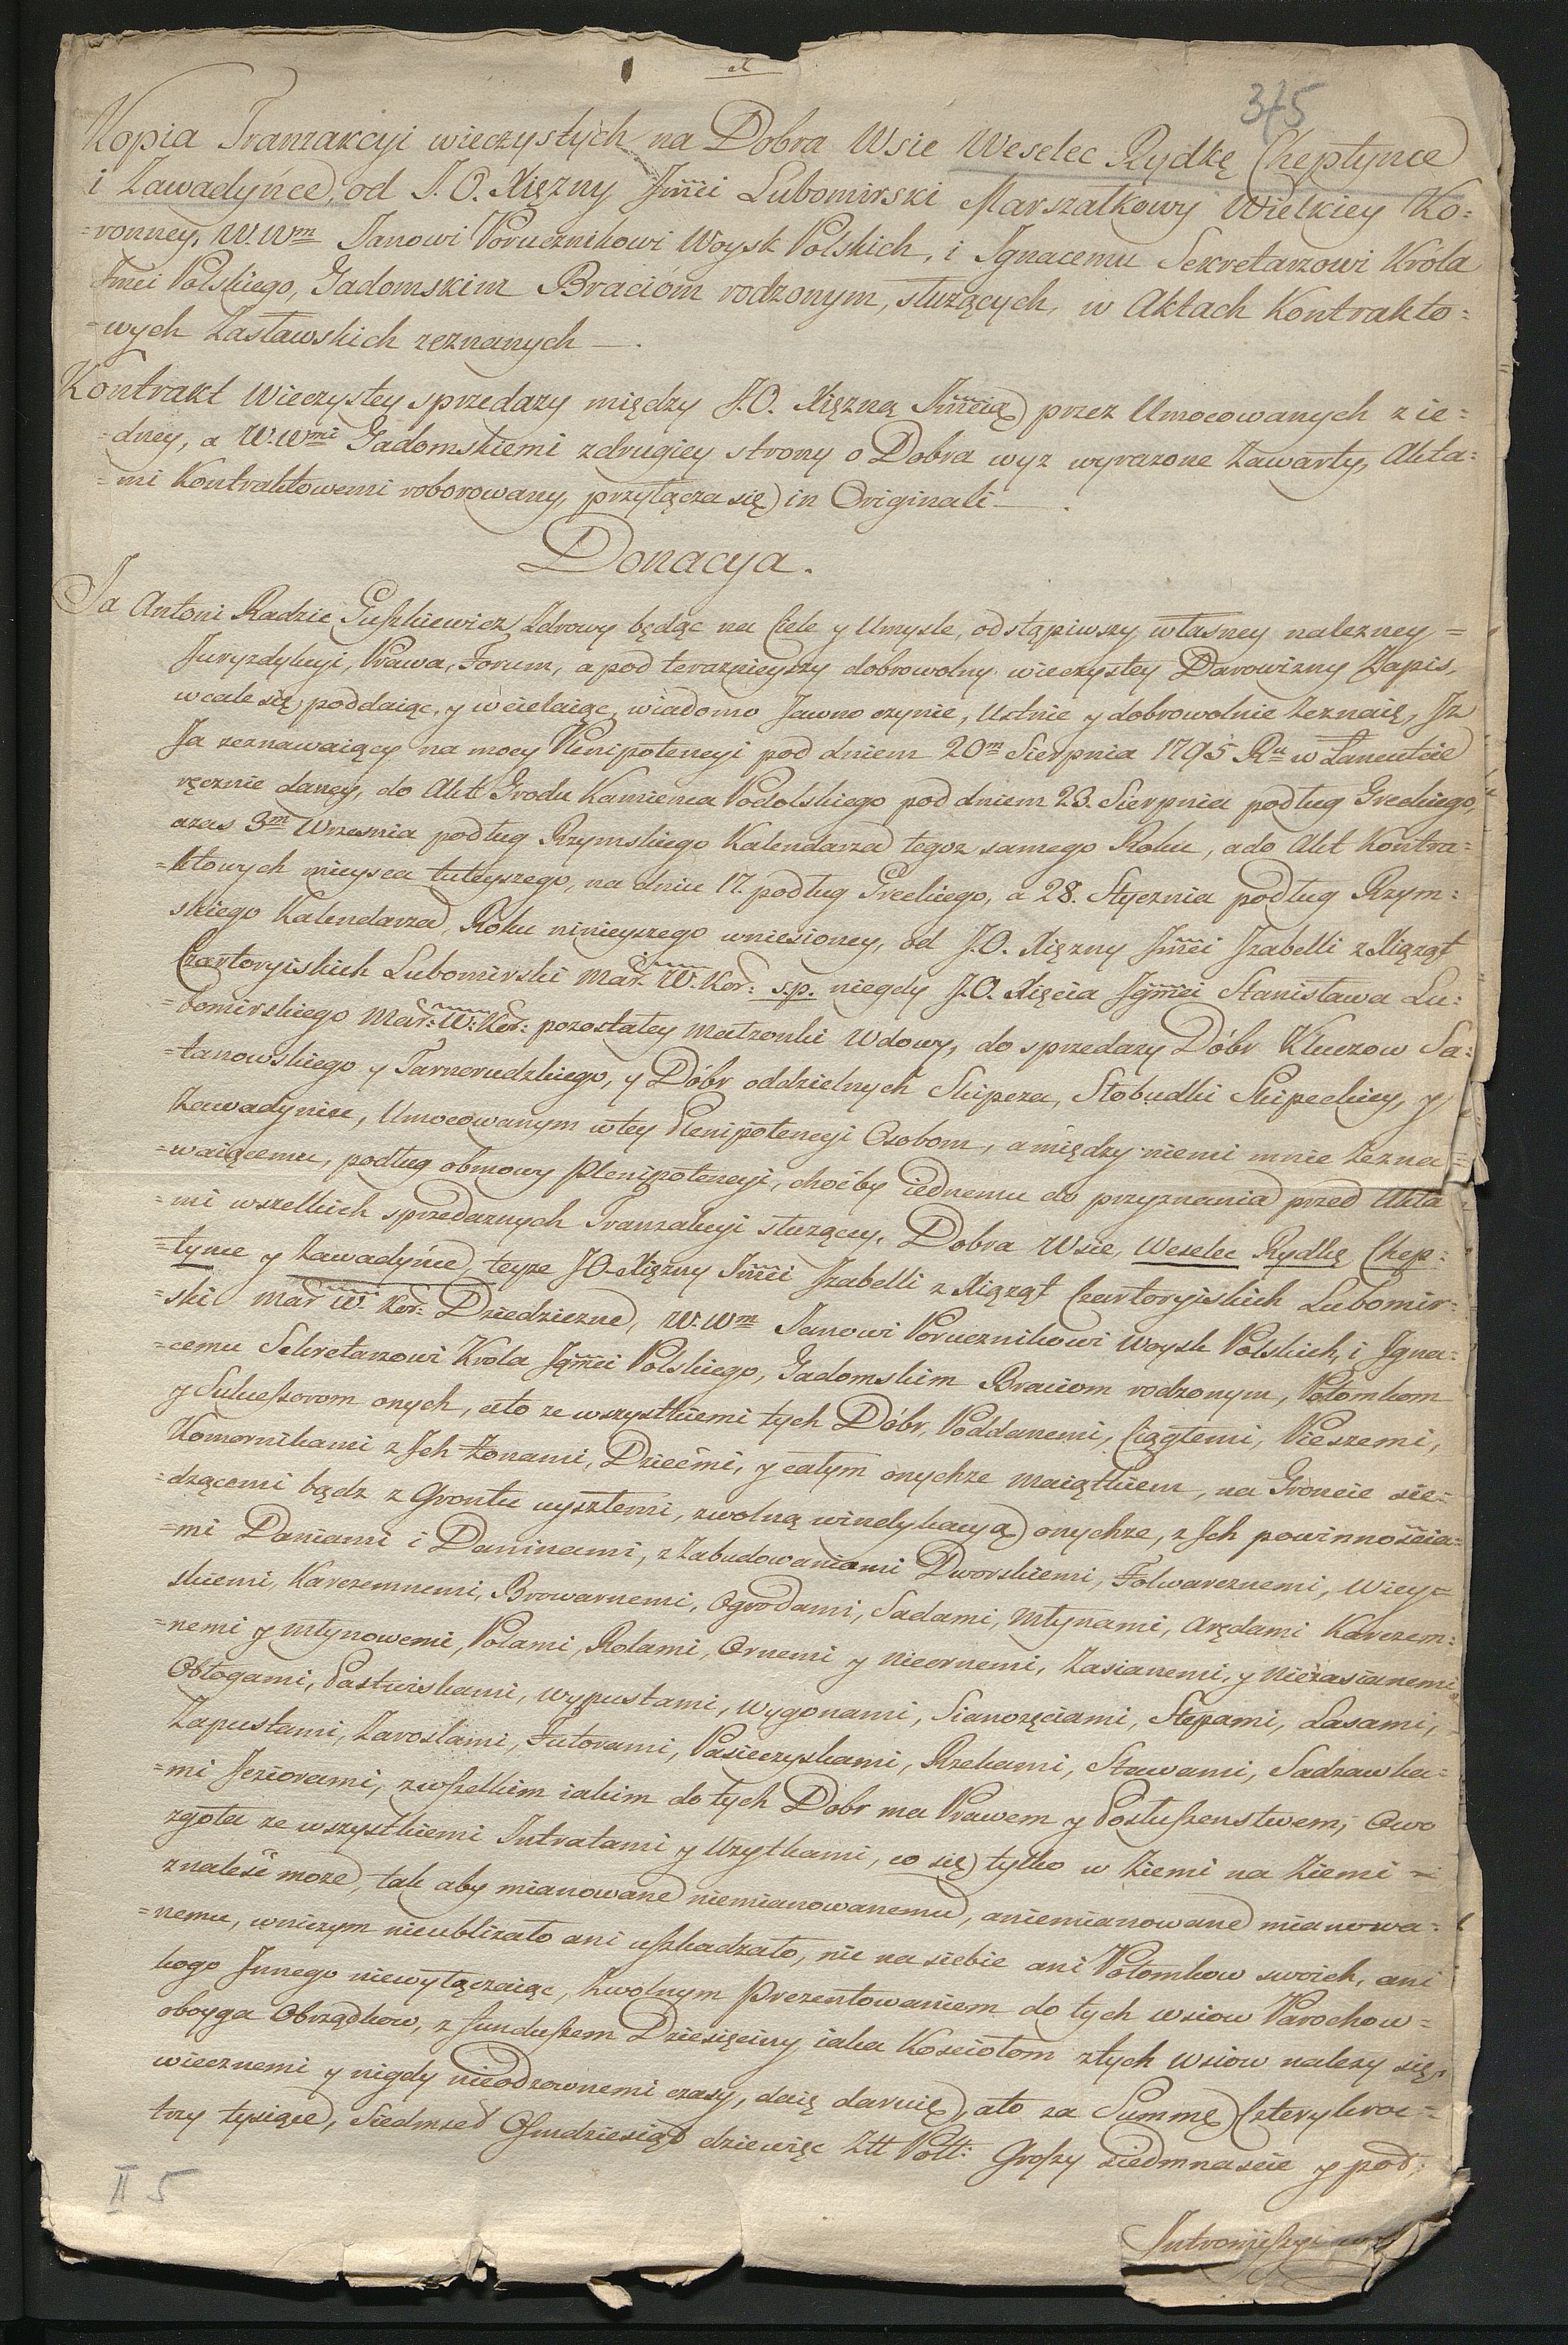 375
Kopia Tranzakcyi wieczystych na Dobra Wsie Weselec Rydkę Cheptynce
i Zawadyńce, od J.O. Xiężny Jmci Lubomirski Marszałkowy Wielkiey Ko:
=ronney, W.Wm Janowi Porucznikowi Woysk Polskich, i Jgnacemu Sekretarzowi Króla
Jmci Polskiego, Gadomskim Braciom rodzonym, służących, w Aktach Kontrakto:
=wych Zasławskich zeznanych —.
Kontrakt Wieczystey sprzedaży między J.O. Xiężną Jmcią przez Umocowanych z ie:
=dney, a W.Wmi Gadomskiemi z drugiey strony o Dobra wyż wyrażone Zawarty, Akta:
=mi Kontraktowemi roborowany, przyłącza się in Originali — .
Donacya.
Ja Antoni Radzic Guszkiewicz Zdrowy będąc na Ciele y Umyśle, odstąpiwszy własney należney =
Juryzdykcyi, Prawa, Forum, a pod teraznieyszy dobrowolny wieczystey Darowizny Zapis,
wcale się poddaiąc, y wcielaiąc, wiadomo Jawno czynię, Ustnie y dobrowolnie Zeznaię, Jż
Ja zeznawaiący na mocy Plenipotencyi pod dniem 20m Sierpnia 1795 Ru w Łancucie
ręcznie daney, do Akt Grodu Kamienca Podolskiego pod dniem 23. Sierpnia podług Greckiego,
azas 3m Wrzesnia podług Rzymskiego Kalendarza tegoz samego Roku, a do Akt Kontra=
=ktowych mieysca tuteyszego, na dniu 17. podług Greckiego, a 28. Stycznia podług Rzym:
skiego Kalendarza, Roku ninieyszego wniesioney, od J.O. Xiężny Jmci Jzabelli z Xiążąt
Czartoryiskich Lubomirski Mar. W. Kor: s.p. niegdy J.O. Xięcia Jgmci Stanisława Lu:
=bomirskiego Mar: W: Kor: pozostałey małżonki Wdowy, do sprzedaży Dóbr Kluczow Sa:
=tanowskiego y Tarnorudzkiego, y Dóbr oddzielnych Skipcza, Słobudki Skipeckiey, y
Zawadyniec, Umocowanym w tey Plenipotencyi Osobom, a między niemi mnie Zezna=
=waiącemu, podług obmowy Plenipotencyi, choćby iednemu do przyznania przed Akta
=mi wszelkich sprzedaznych Tranzakcyi służącey, Dobra Wsie, Weselec Rydkę Chep:
=tynce y Zawadyńce, teyże J.O. Xiężny Jmci Jzabelli z Xiążąt Czartoryiskich Lubomir:
=ski Mar W. Kor: Dziedziczne, W.Wm Janowi Porucznikowi Woysk Polskich, i Jgna:
=cemu Sekretarzowi Króla Jgmci Polskiego, Gadomskim Braciom rodzonym, Potomkom
y Sukcessorom onych, a to ze wszystkiemi tych Dóbr, Poddanemi, Ciągłemi, Pieszemi,
Komornikami z Jch Żonami, Dziećmi, y całym onychże maiątkiem, na Gruncie sie=
=dzącemi bądz z Gruntu uyszłemi, z wolną windykacyą onychże, z Jch powinnościa=
=mi Daniami i Daninami, z Zabudowaniami Dworskiemi, Folwarcznemi, Wiey=
skiemi, Karczemnemi, Browarnemi, Ogrodami, Sadami, Młynami, Arędami Karczem:
=nemi y Młynowemi, Polami, Rolami, Ornemi y nieornemi, Zasianemi, y niezasianemi
Obłogami, Pastwiskami, wypustami, wygonami, Sianożęciami, Stepami, Lasami,
Zapustami, Zaroslami, Futorami, Pasieczyskami, Rzekami, Stawami, Sadzawka=
=mi Jeziorami, z wszelkim iakim do tych Dobr ma Prawem y Posłuszenstwem, Owo
zgoła ze wszystkiemi Jntratami y Użytkami, co się tylko w Ziemi na Ziemi =
znaleść może, tak aby mianowane niemianowanemu, a niemianowane mianowa:
=nemu, w niczym nieubliżało ani uszkadzało, nic na siebie ani Potomkow swoich, ani
kogo Jnnego niewyłączaiąc, z wolnym Prezentowaniem do tych wsiow Parochow =
oboyga Obrządkow, z funduszem Dziesięciny iaka Kościołom z tych wsiow należy się,
wiecznemi y nigdy nieodzownemi czasy, daię daruię, a to za Summę Czterykroć=
trzy tysiące, Siedmset Osmdziesiąt dziewięc Złł Poll: Groszy siedmnascie y pod:
II 5